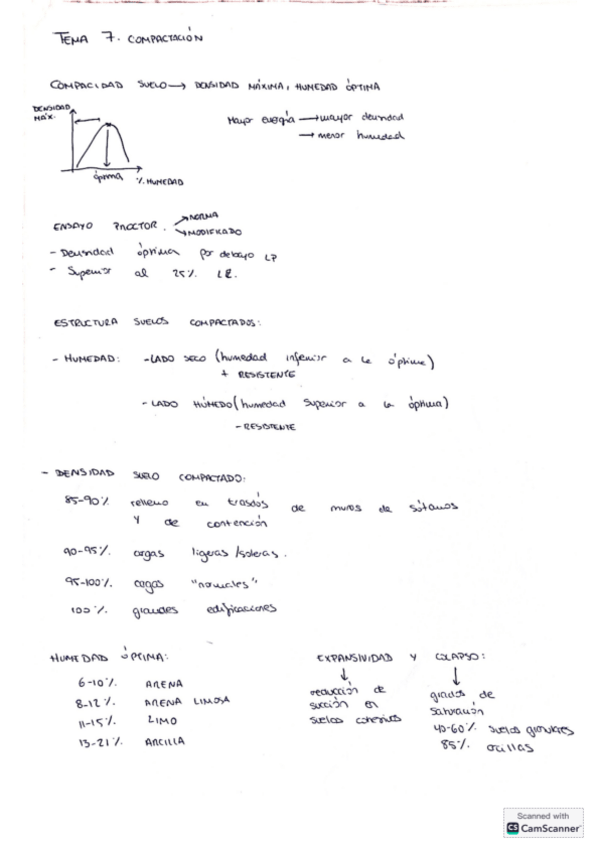 TEMA 7. COMPACTACIÓN
COMPACIDAD SUELO → DENSIDAD MÁXIMA, HUMEDAD ÓPTIMA
DENSIDAD
MÁX.
óptima
% HUMEDAD
Mayor energía → mayor densidad
→ menor humedad
ENSAYO PROCTOR.
NORMA
MODIFICADO
- Densidad óptima por debajo LP
- Superior al 25% LE.
ESTRUCTURA SUELOS COMPACTADOS:
- HUMEDAD: - LADO SECO (humedad inferior a la óptima)
+ RESISTENTE
- LADO HÚMEDO (humedad superior a la óptima)
- RESISTENTE
- DENSIDAD SUELO COMPACTADO:
85-90% relleno en trasdós de muros de sótanos
y de contención
90-95% cargas ligeras /soleras.
95-100% cargas "normales"
100% grandes edificaciones
HUMEDAD ÓPTIMA:
6-10% ARENA
8-12% ARENA LIMOSA
11-15% LIMO
13-21% ARCILLA
EXPANSIVIDAD Y COLAPSO:
reducción de
succión en
suelos cohesivos
grados de
saturación
40-60% suelos granulares
85% arcillas
Scanned with
CS CamScanner